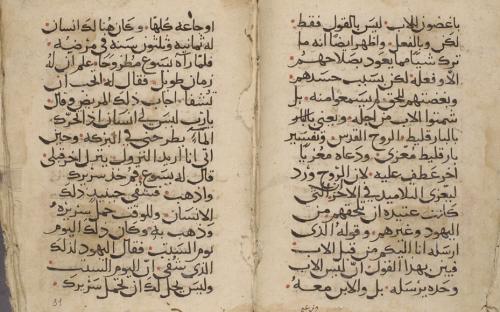 باغضون للاب: ليس بالقول فقط
لكن وبالفعل: واظهر ايضا انه ما
ترك شيا مما يعود بصلاحهم
الا وفعله: لكن بسبب حسدهم
وبغضتهم للحق لم يسمعوا منه: بل
شتموا الاب من اجله: ويعني
بالبارقليط: الروح القدس وتفسير
بارقليط معزي: ودعاه معزيا
اخر عطف عليه: لان الروح ورد
ليعزي التلاميذ في الاحزان التي
كانت عتيده ان تلحقهم من
اليهود وغيرهم: وقوله الذي
ارسله انا اليكم من قبل الاب
فبين بهذا القول ان ليس الاب
وحده يرسله: بل والابن معه
اوجاعه كلها: وكان هناك انسان
له ثمانيه وثلثون سنه في مرضه
فلما راه يسوع مطروحا علم ان له
زمان طويل: فقال له اتحب ان
تشفا: اجاب ذلك المريض وقال
يارب ليس لي انسان اذا تحرك
الماء يطرحني في البركه: وحين
اتي انا اريد النزول ينزل اخر قبلي
قال له يسوع قم خذ سريرك
واذهب: فشفي حينيذ ذلك
الانسان: وللوقت حمل سريره
وذهب به وكان ذلك اليوم
يوم السبت: فقال اليهود لذلك
الذي شفي: ان اليوم السبت
وليس يحل لك ان تحمل سريرك